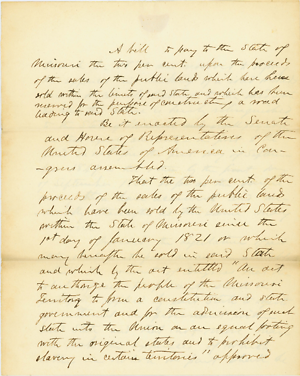 A bill to pay to the State of
Missouri the two per cent. upon the proceeds
of the sales of the public lands which here have
sold within the limits of said State, and which has been
reserved for the purpose of constructing a road
leading to said State.
Be it enacted by the Senate
and House of Representatives of the
United States of America in Con-
-gress assembled.
That the two per cent of the
proceeds of the sales of the public lands
which have been sold by the United States
within the State of Missouri since the
1st day of January 1821 or which
may hereafter be sold in said State
and which by the act entitled "An act
to authorize the people of the Missouri
Territory to form a constitution and state
government and for the admission of such
state into the Union on an equal footing
with the original states and to prohibit
slavery in certain territories" approved